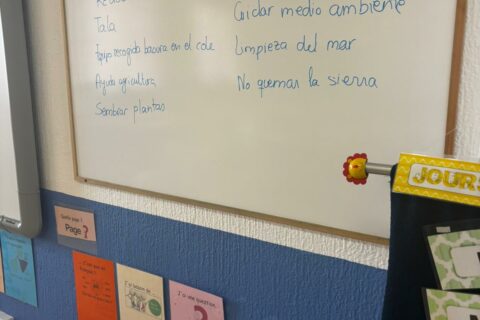 Tala
Grupo recogida basura en el cole
Ayuda agricultura
Sembrar plantas
Cuidar medio ambiente
Limpieza del mar
No quemar la sierra
JOURS
Quelle page ?
Page ?
J'ai besoin de
J'ai une question.
?